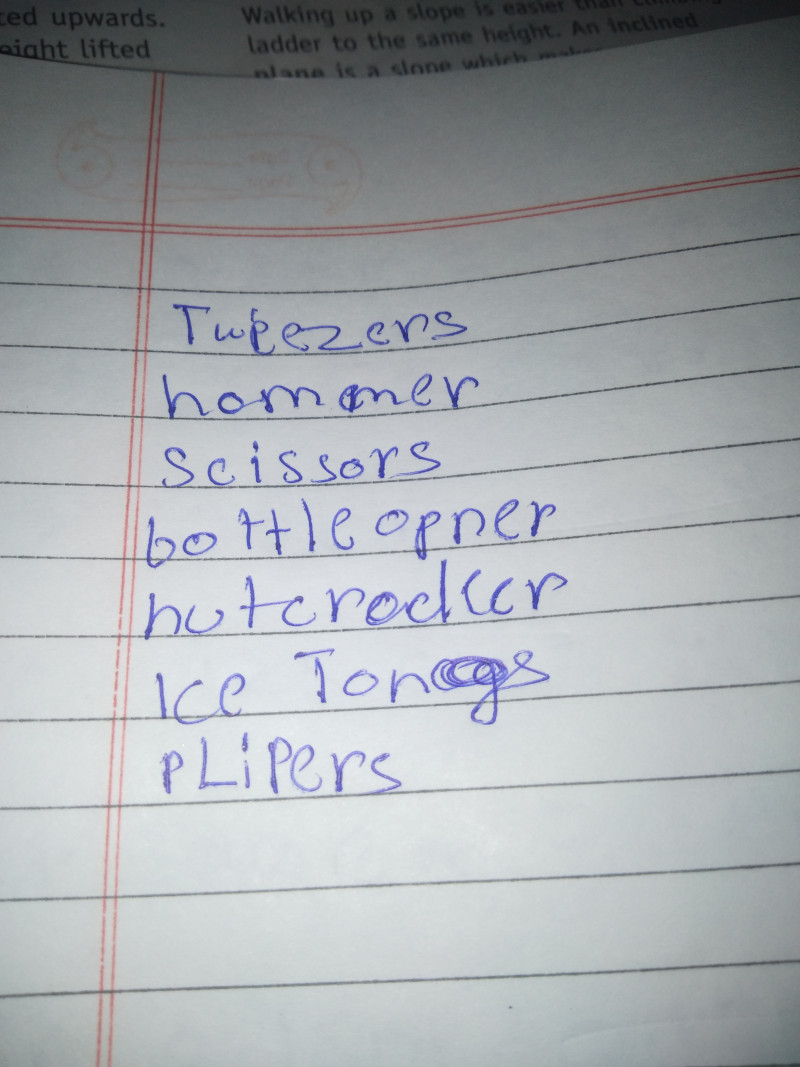 ted upwards.
eight lifted
Walking up a slope is easier than climbing
ladder to the same height. An inclined
plane is a slope which makes
Tweezers
hommer
Scissors
bottle opner
nutcrocker
Ice Tongs
pLipers